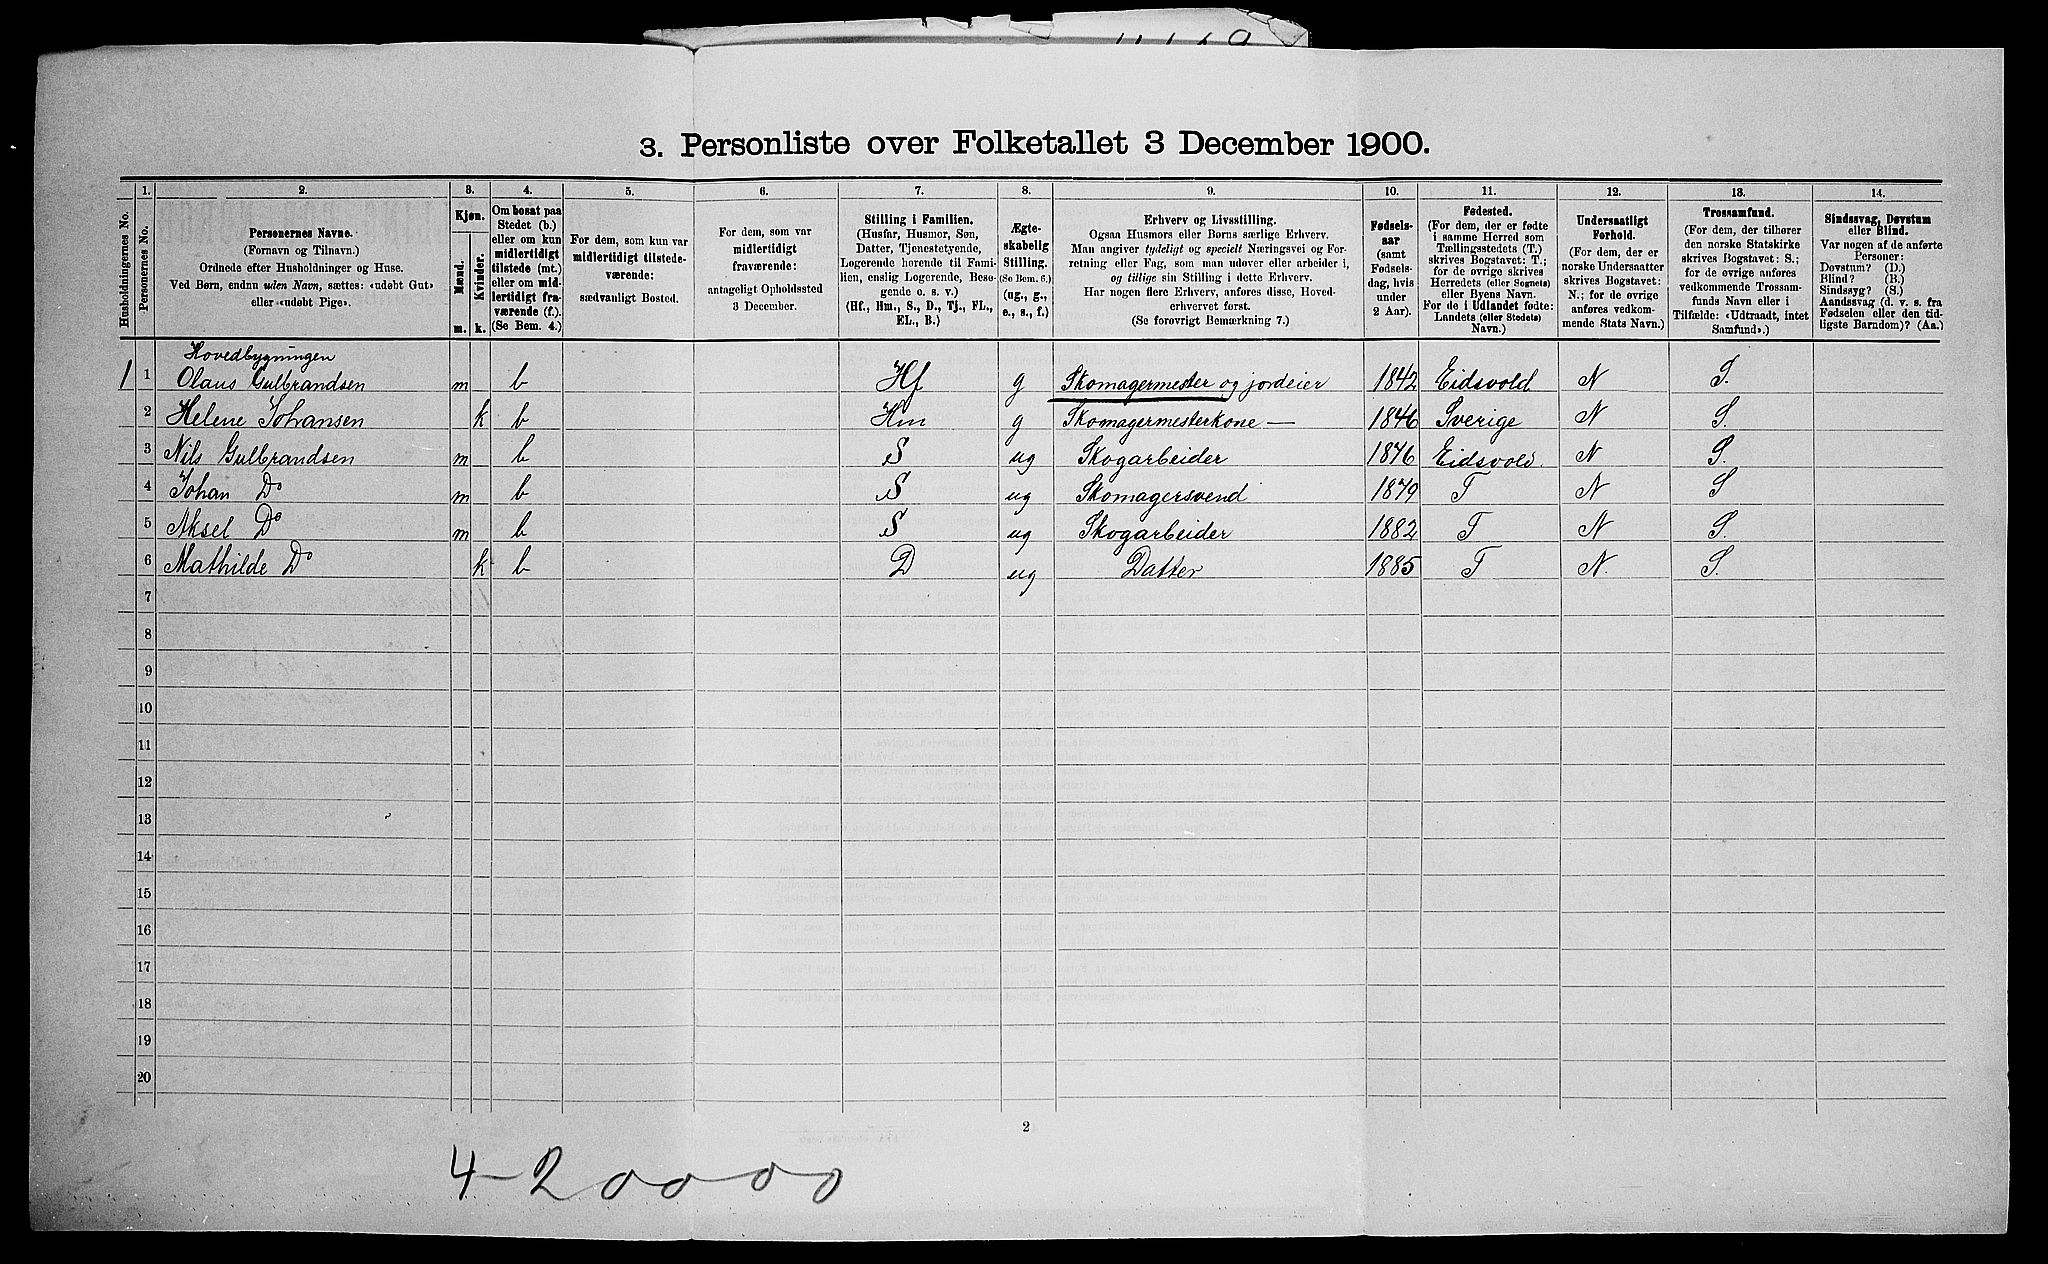 3. Personliste over Folketallet 3 December 1900.
Husholdningernes No.
1.
Personernes No.
2.
Personernes Navne.
(Fornavn og Tilnavn.)
Ordnede efter Husholdninger og Huse.
Ved Børn, endnu uden Navn, sættes: «udøbt Gut»
eller «udøbt Pige».
3.
Kjøn.
Mænd.
Kvinder.
m. k.
4.
Om bosat paa
Stedet (b.)
eller om kun
midlertidigt
tilstede (mt.)
eller om mid-
lertidigt fra-
værende (f.).
(Se Bem. 4.)
5.
For dem, som kun var
midlertidigt tilstede-
værende:
sædvanligt Bosted.
6.
For dem, som var
midlertidigt
fraværende:
antageligt Opholdssted
3 December.
7.
Stilling i Familien.
(Husfar, Husmor, Søn,
Datter, Tjenestetyende,
Logerende hørende til Fami-
lien, enslig Logerende, Besø-
gende o. s. v.)
(Hf., Hm., S., D., Tj., FL.,
EL., B.)
8.
Ægte-
skabelig
Stilling.
(Se Bem. 6.)
(ug., g.,
e., s., f.)
9.
Erhverv og Livsstilling.
Ogsaa Husmors eller Børns særlige Erhverv.
Man angiver tydeligt og specielt Næringsvei og For-
retning eller Fag, som man udøver eller arbeider i,
og tillige sin Stilling i dette Erhverv.
Har nogen flere Erhverv, anføres disse, Hoved-
erhvervet først.
(Se forøvrigt Bemærkning 7.)
10.
Fødsels-
aar
(samt
Fødsels-
dag, hvis
under
2 Aar).
11.
Fødested.
(For dem, der er fødte
i samme Herred som
Tællingsstedets (T.)
skrives Bogstavet: T.;
for de øvrige skrives
Herredets (eller Sognets)
eller Byens Navn.
For de i Udlandet fødte:
Landets (eller Stedets)
Navn.)
12.
Undersaatligt
Forhold.
(For dem, der er
norske Undersaatter
skrives Bogstavet:
N.; for de øvrige
anføres vedkom-
mende Stats Navn.)
13.
Trossamfund.
(For dem, der tilhører
den norske Statskirke
skrives Bogstavet: S.;
for de øvrige anføres
vedkommende Trossam-
funds Navn eller i
Tilfælde: «Udtraadt, intet
Samfund».)
14.
Sindssvag, Døvstum
eller Blind.
Var nogen af de anførte
Personer:
Døvstum? (D.)
Blind? (B.)
Sindssyg? (S.)
Aandssvag (d. v. s. fra
Fødselen eller den tid-
ligste Barndom)? (Aa.)
Hovedbygningen
1 1 Olaus Gulbrandsen m b Hf g Skomagermester og jordeier 1842 Eidsvold N S.
2 Helene Johansen k b Hm g Skomagermesterkone — 1846 Sverige N S.
3 Nils Gulbrandsen m b S ug Skogarbeider 1876 Eidsvold. N S.
4 Johan Do m b S ug Skomagersvend 1879 T N S
5 Aksel Do m b S ug Skogarbeider 1882 T N S.
6 Mathilde Do k b D ug Datter 1885 T N. S.
7
8
9
10
11
12
13
14
15
16
17
18
19
20
2
4-20000